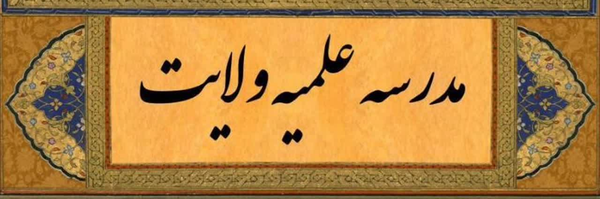 مدرسه علمیه ولایت